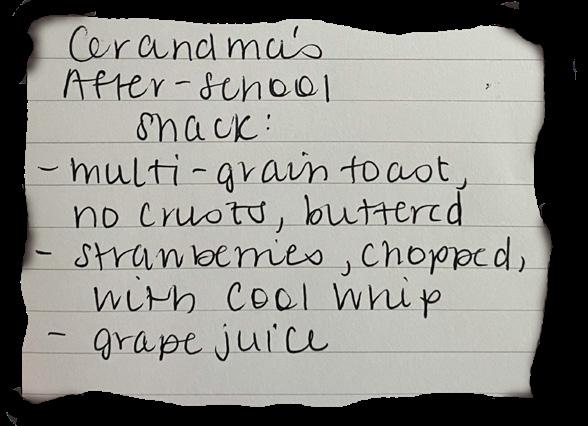 Grandma's
After-school
snack:
- multi-grain toast,
no crusts, buttered
- strawberries, chopped,
with cool whip
- grape juice